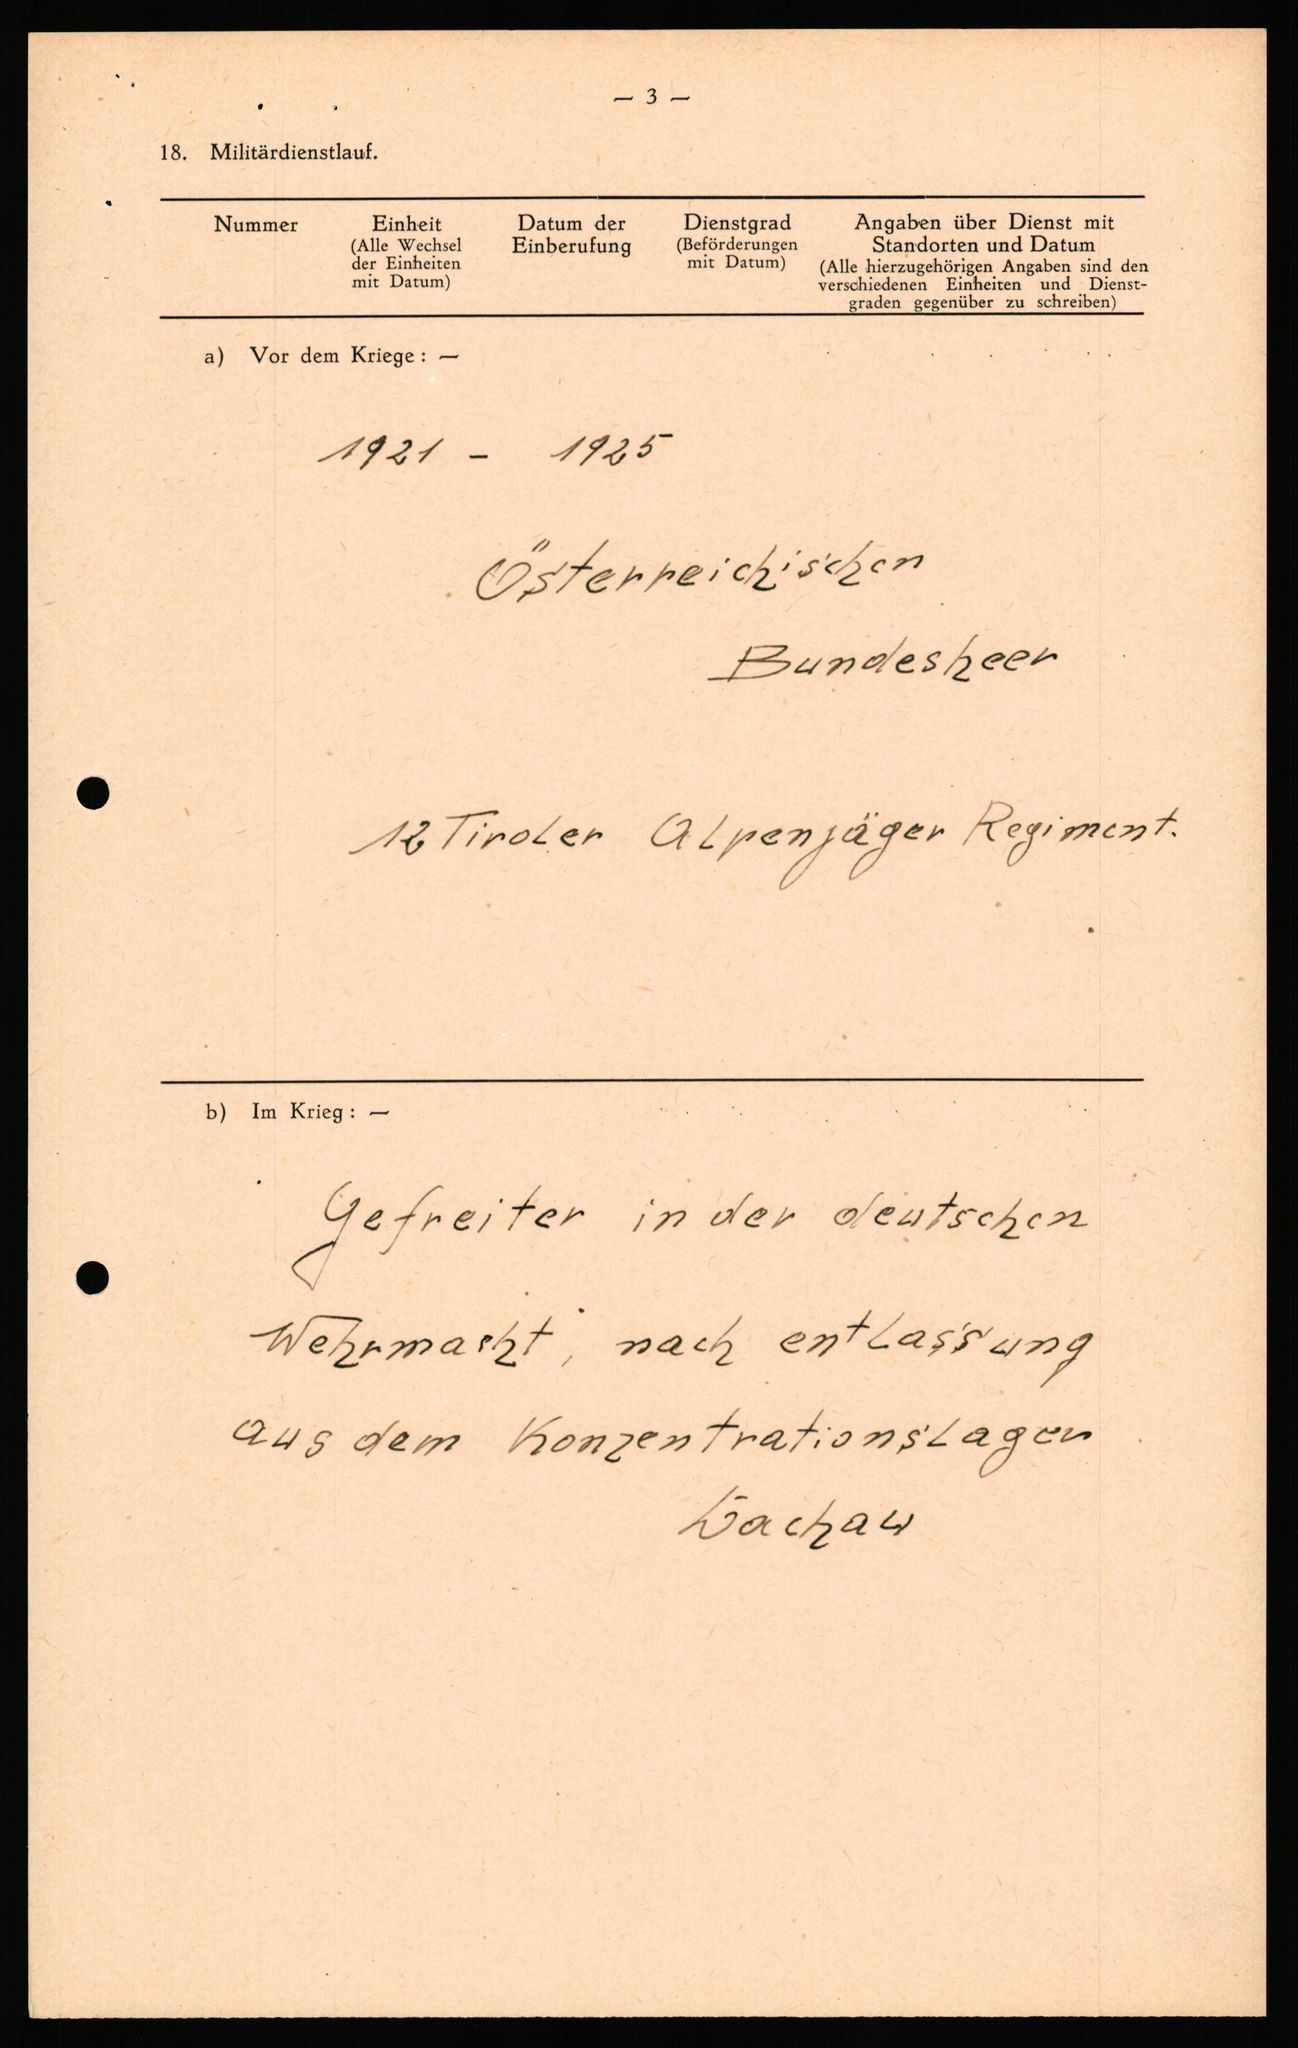 — 3 —
18. Militärdienstlauf.
Nummer Einheit Datum der Dienstgrad Angaben über Dienst mit
(Alle Wechsel Einberufung (Beförderungen Standorten und Datum
der Einheiten mit Datum) (Alle hierzugehörigen Angaben sind den
mit Datum) verschiedenen Einheiten und Dienst-
graden gegenüber zu schreiben)
a) Vor dem Kriege: —
1921 - 1925
Österreichischen
Bundesheer
12 Tiroler Alpenjäger Regiment.
b) Im Krieg: —
Gefreiter in der deutschen
Wehrmacht, nach entlassung
aus dem Konzentrationslager
Dachau